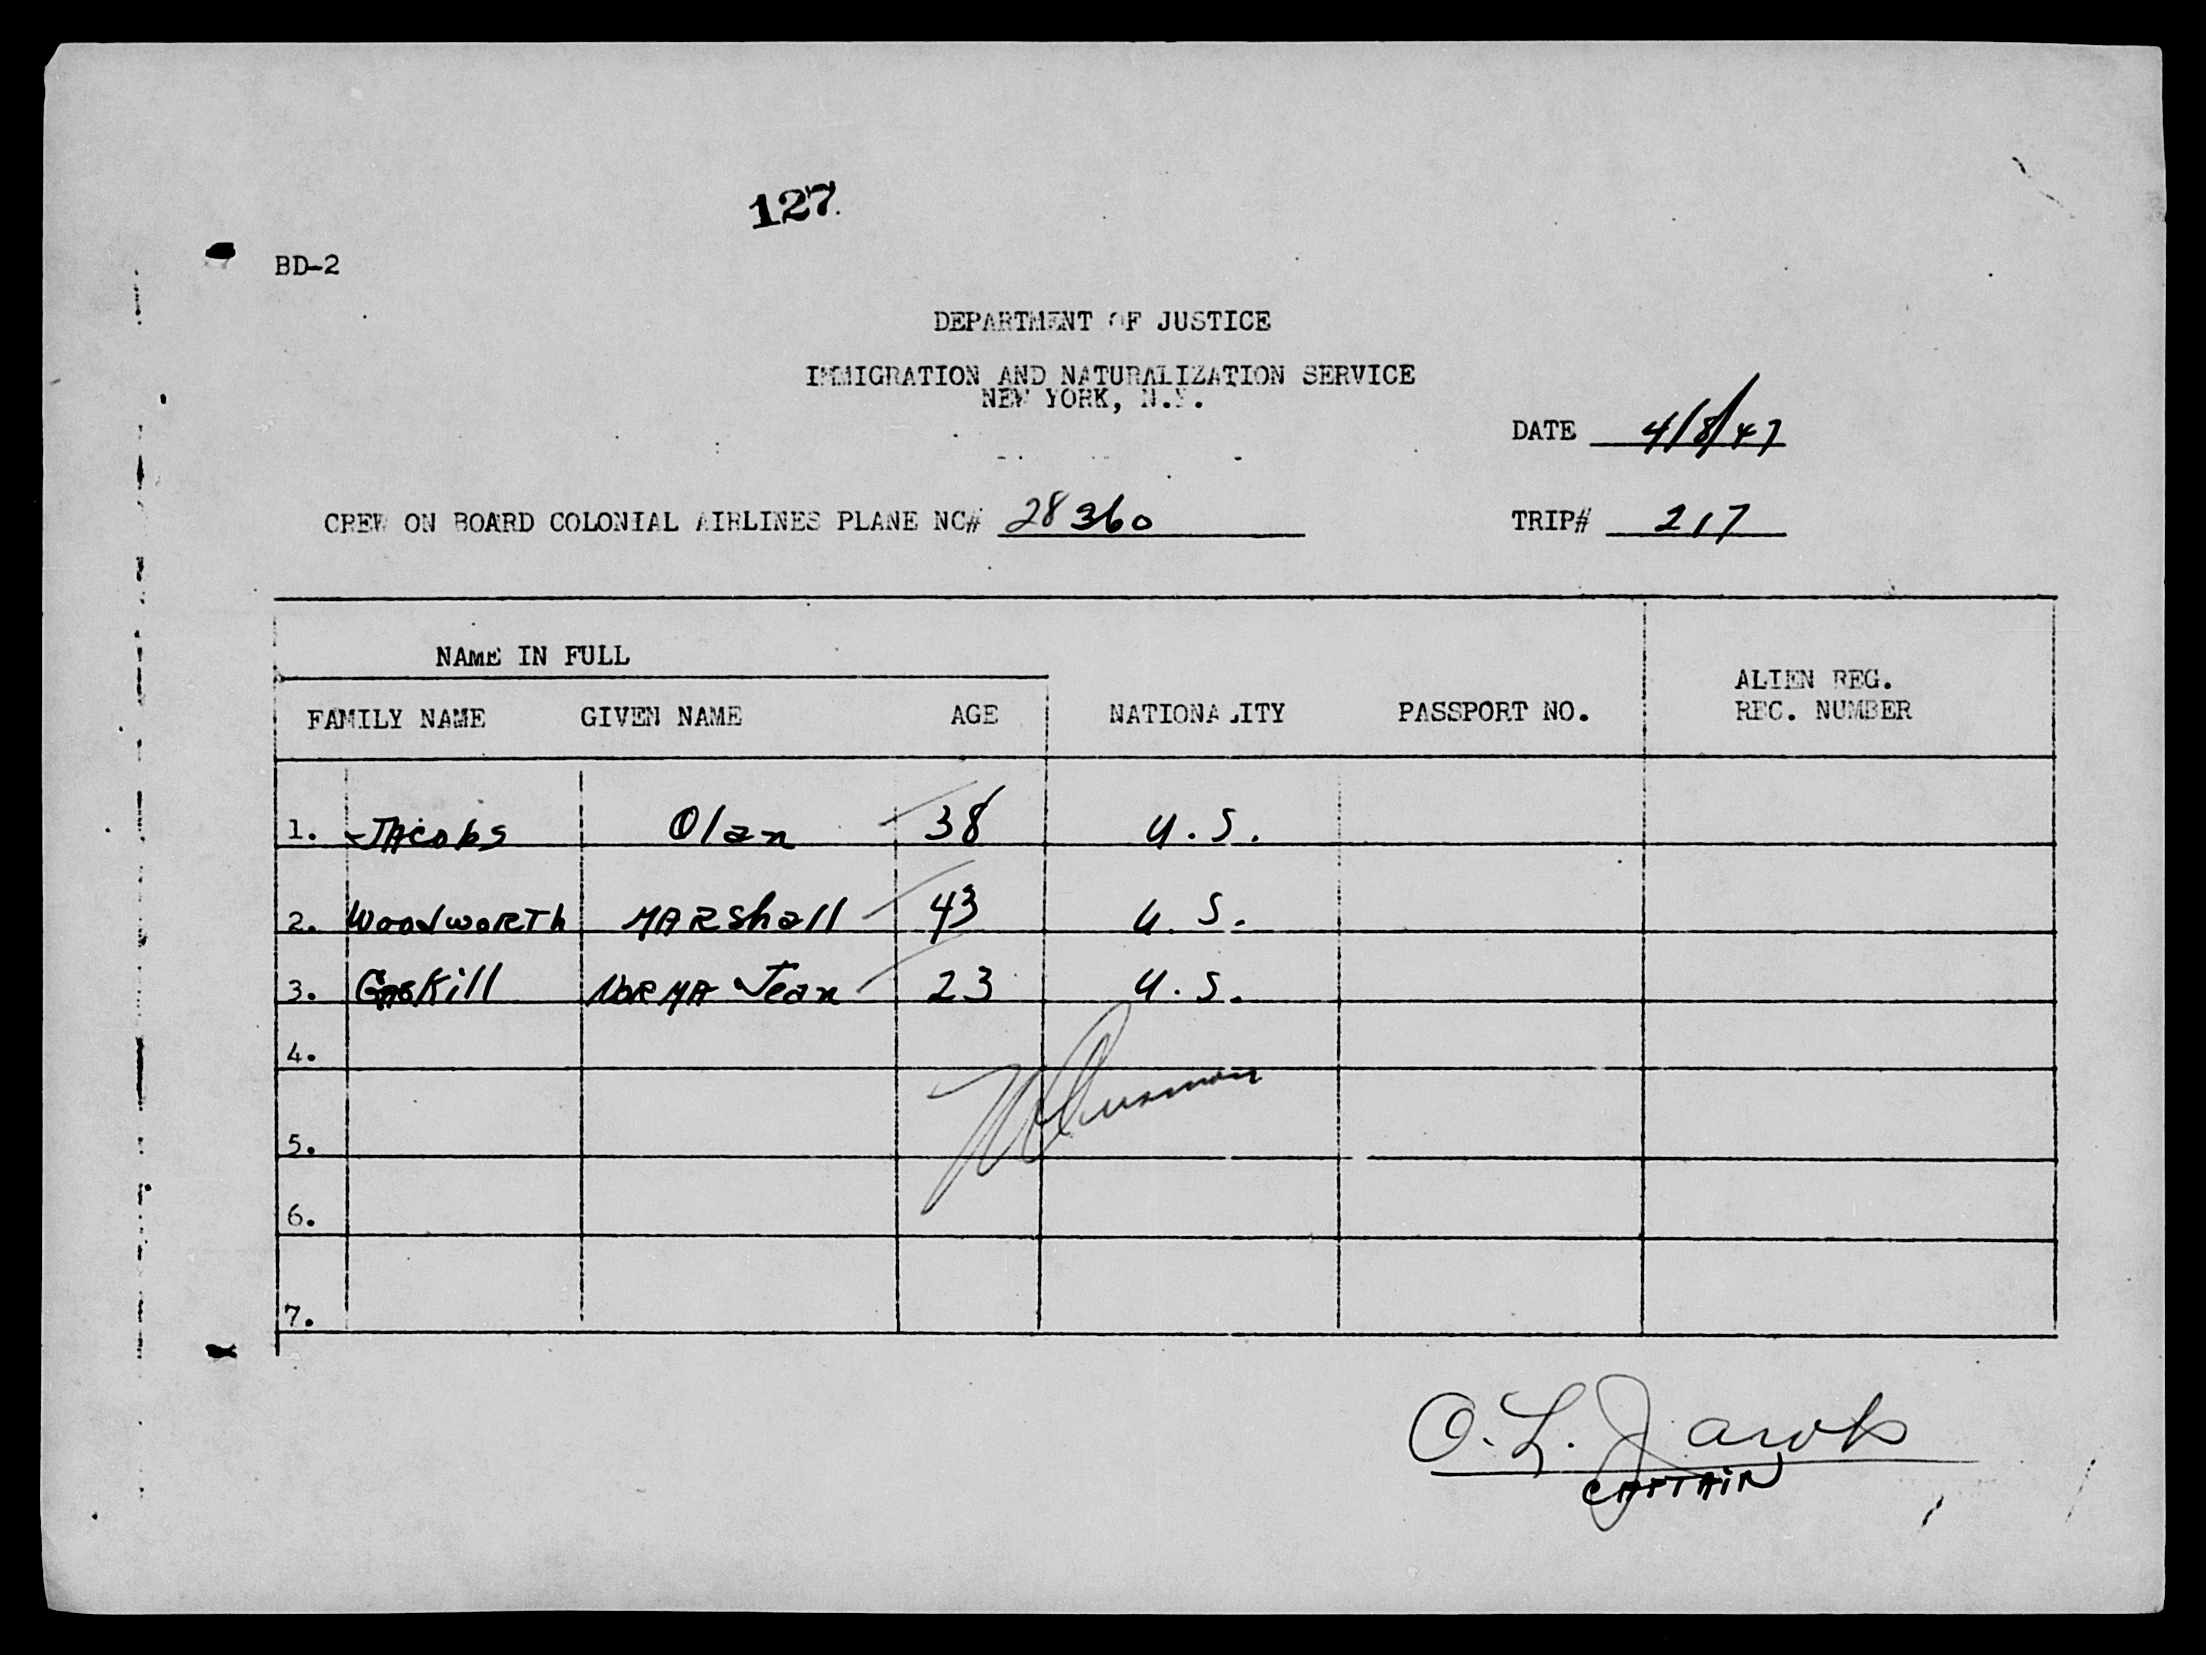 127.
BD-2
DEPARTMENT OF JUSTICE
IMMIGRATION AND NATURALIZATION SERVICE
NEW YORK, N.Y.
DATE 4/8/47
CREW ON BOARD COLONIAL AIRLINES PLANE NC# 28360 TRIP# 217
NAME IN FULL
FAMILY NAME GIVEN NAME AGE NATIONALITY PASSPORT NO. ALIEN REG. REC. NUMBER
1. JAcobs Olan 38 U.S.
2. WoodwoRTh MARshall 43 U.S.
3. GasKill NoRMA Jean 23 U.S.
4.
5.
6.
7.
O. L. Jacobs
CAPTAiN